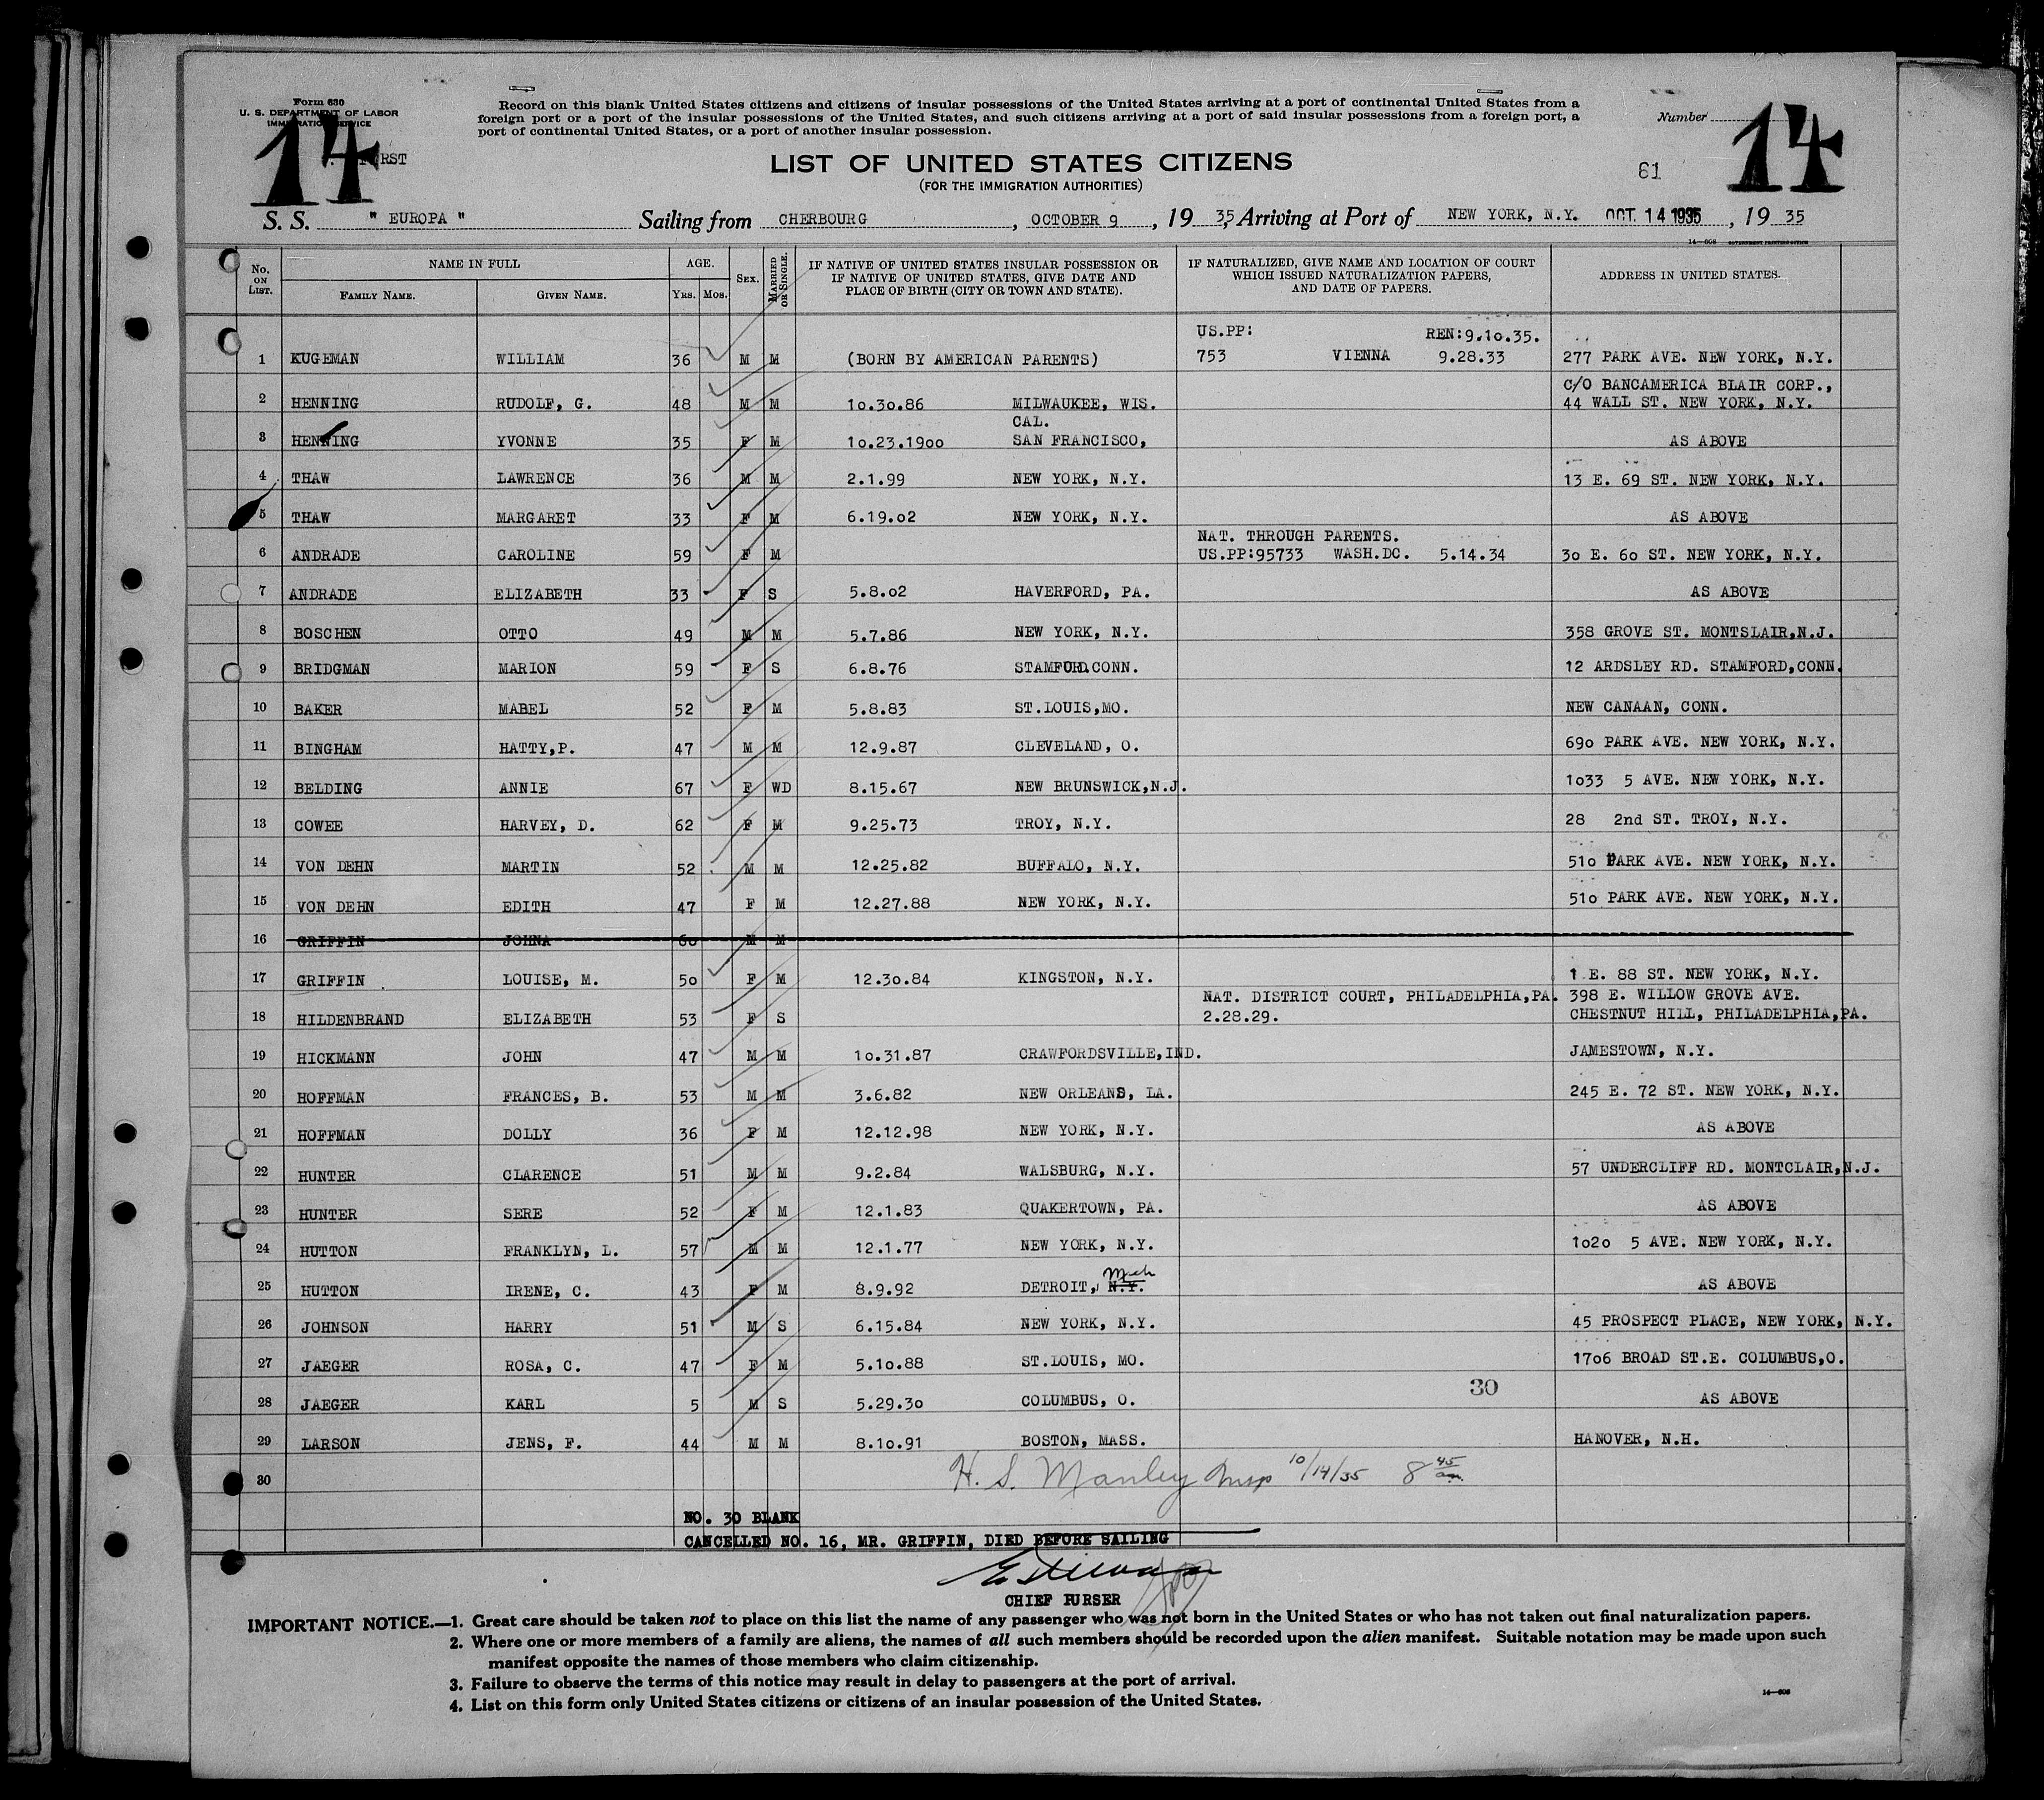 Form 630
U. S. DEPARTMENT OF LABOR
IMMIGRATION SERVICE
14
FIRST
Record on this blank United States citizens and citizens of insular possessions of the United States arriving at a port of continental United States from a
foreign port or a port of the insular possessions of the United States, and such citizens arriving at a port of said insular possessions from a foreign port, a
port of continental United States, or a port of another insular possession.
Number
14
LIST OF UNITED STATES CITIZENS
(FOR THE IMMIGRATION AUTHORITIES)
61
S. S. " EUROPA " Sailing from CHERBOURG, OCTOBER 9, 19 35, Arriving at Port of NEW YORK, N.Y. OCT 14 1935, 19 35
14—608 GOVERNMENT PRINTING OFFICE
No. ON LIST. NAME IN FULL AGE. SEX. MARRIED OR SINGLE. IF NATIVE OF UNITED STATES INSULAR POSSESSION OR IF NATIVE OF UNITED STATES, GIVE DATE AND PLACE OF BIRTH (CITY OR TOWN AND STATE). IF NATURALIZED, GIVE NAME AND LOCATION OF COURT WHICH ISSUED NATURALIZATION PAPERS, AND DATE OF PAPERS. ADDRESS IN UNITED STATES.
FAMILY NAME. GIVEN NAME. YRS. MOS.
US.PP: REN:9.10.35.
1 KUGEMAN WILLIAM 36 M M (BORN BY AMERICAN PARENTS) 753 VIENNA 9.28.33 277 PARK AVE. NEW YORK, N.Y.
C/O BANCAMERICA BLAIR CORP.,
2 HENNING RUDOLF, G. 48 M M 10.30.86 MILWAUKEE, WIS. 44 WALL ST. NEW YORK, N.Y.
CAL.
3 HENNING YVONNE 35 F M 10.23.1900 SAN FRANCISCO, AS ABOVE
4 THAW LAWRENCE 36 M M 2.1.99 NEW YORK, N.Y. 13 E. 69 ST. NEW YORK, N.Y.
5 THAW MARGARET 33 F M 6.19.02 NEW YORK, N.Y. AS ABOVE
NAT. THROUGH PARENTS.
6 ANDRADE CAROLINE 59 F M US.PP:95733 WASH.DC. 5.14.34 30 E. 60 ST. NEW YORK, N.Y.
7 ANDRADE ELIZABETH 33 F S 5.8.02 HAVERFORD, PA. AS ABOVE
8 BOSCHEN OTTO 49 M M 5.7.86 NEW YORK, N.Y. 358 GROVE ST. MONTSLAIR,N.J.
9 BRIDGMAN MARION 59 F S 6.8.76 STAMFORD.CONN. 12 ARDSLEY RD. STAMFORD,CONN.
10 BAKER MABEL 52 F M 5.8.83 ST.LOUIS,MO. NEW CANAAN, CONN.
11 BINGHAM HATTY,P. 47 M M 12.9.87 CLEVELAND, O. 690 PARK AVE. NEW YORK, N.Y.
12 BELDING ANNIE 67 F WD 8.15.67 NEW BRUNSWICK,N.J. 1033 5 AVE. NEW YORK, N.Y.
13 COWEE HARVEY, D. 62 F M 9.25.73 TROY, N.Y. 28 2nd ST. TROY, N.Y.
14 VON DEHN MARTIN 52 M M 12.25.82 BUFFALO, N.Y. 510 PARK AVE. NEW YORK, N.Y.
15 VON DEHN EDITH 47 F M 12.27.88 NEW YORK, N.Y. 510 PARK AVE. NEW YORK, N.Y.
16 GRIFFIN JOHNA 60 M M
17 GRIFFIN LOUISE, M. 50 F M 12.30.84 KINGSTON, N.Y. 1 E. 88 ST. NEW YORK, N.Y.
NAT. DISTRICT COURT, PHILADELPHIA,PA. 398 E. WILLOW GROVE AVE.
18 HILDENBRAND ELIZABETH 53 F S 2.28.29. CHESTNUT HILL, PHILADELPHIA,PA.
19 HICKMANN JOHN 47 M M 10.31.87 CRAWFORDSVILLE,IND. JAMESTOWN, N.Y.
20 HOFFMAN FRANCES, B. 53 M M 3.6.82 NEW ORLEANS, LA. 245 E. 72 ST. NEW YORK, N.Y.
21 HOFFMAN DOLLY 36 F M 12.12.98 NEW YORK, N.Y. AS ABOVE
22 HUNTER CLARENCE 51 M M 9.2.84 WALSBURG, N.Y. 57 UNDERCLIFF RD. MONTCLAIR,N.J.
23 HUNTER SERE 52 F M 12.1.83 QUAKERTOWN, PA. AS ABOVE
24 HUTTON FRANKLYN, L. 57 M M 12.1.77 NEW YORK, N.Y. 1020 5 AVE. NEW YORK, N.Y.
Mich
25 HUTTON IRENE, C. 43 F M 8.9.92 DETROIT, N.Y. AS ABOVE
26 JOHNSON HARRY 51 M S 6.15.84 NEW YORK, N.Y. 45 PROSPECT PLACE, NEW YORK, N.Y.
27 JAEGER ROSA, C. 47 F M 5.10.88 ST.LOUIS, MO. 1706 BROAD ST.E. COLUMBUS,O.
30
28 JAEGER KARL 5 M S 5.29.30 COLUMBUS, O. AS ABOVE
29 LARSON JENS, F. 44 M M 8.10.91 BOSTON, MASS. HANOVER, N.H.
30 H. S. Manley Insp 10/14/35 8 45 am
NO. 30 BLANK
CANCELLED NO. 16, MR. GRIFFIN, DIED BEFORE SAILING
CHIEF PURSER
IMPORTANT NOTICE.—1. Great care should be taken not to place on this list the name of any passenger who was not born in the United States or who has not taken out final naturalization papers.
2. Where one or more members of a family are aliens, the names of all such members should be recorded upon the alien manifest. Suitable notation may be made upon such
manifest opposite the names of those members who claim citizenship.
3. Failure to observe the terms of this notice may result in delay to passengers at the port of arrival.
4. List on this form only United States citizens or citizens of an insular possession of the United States.
14—608